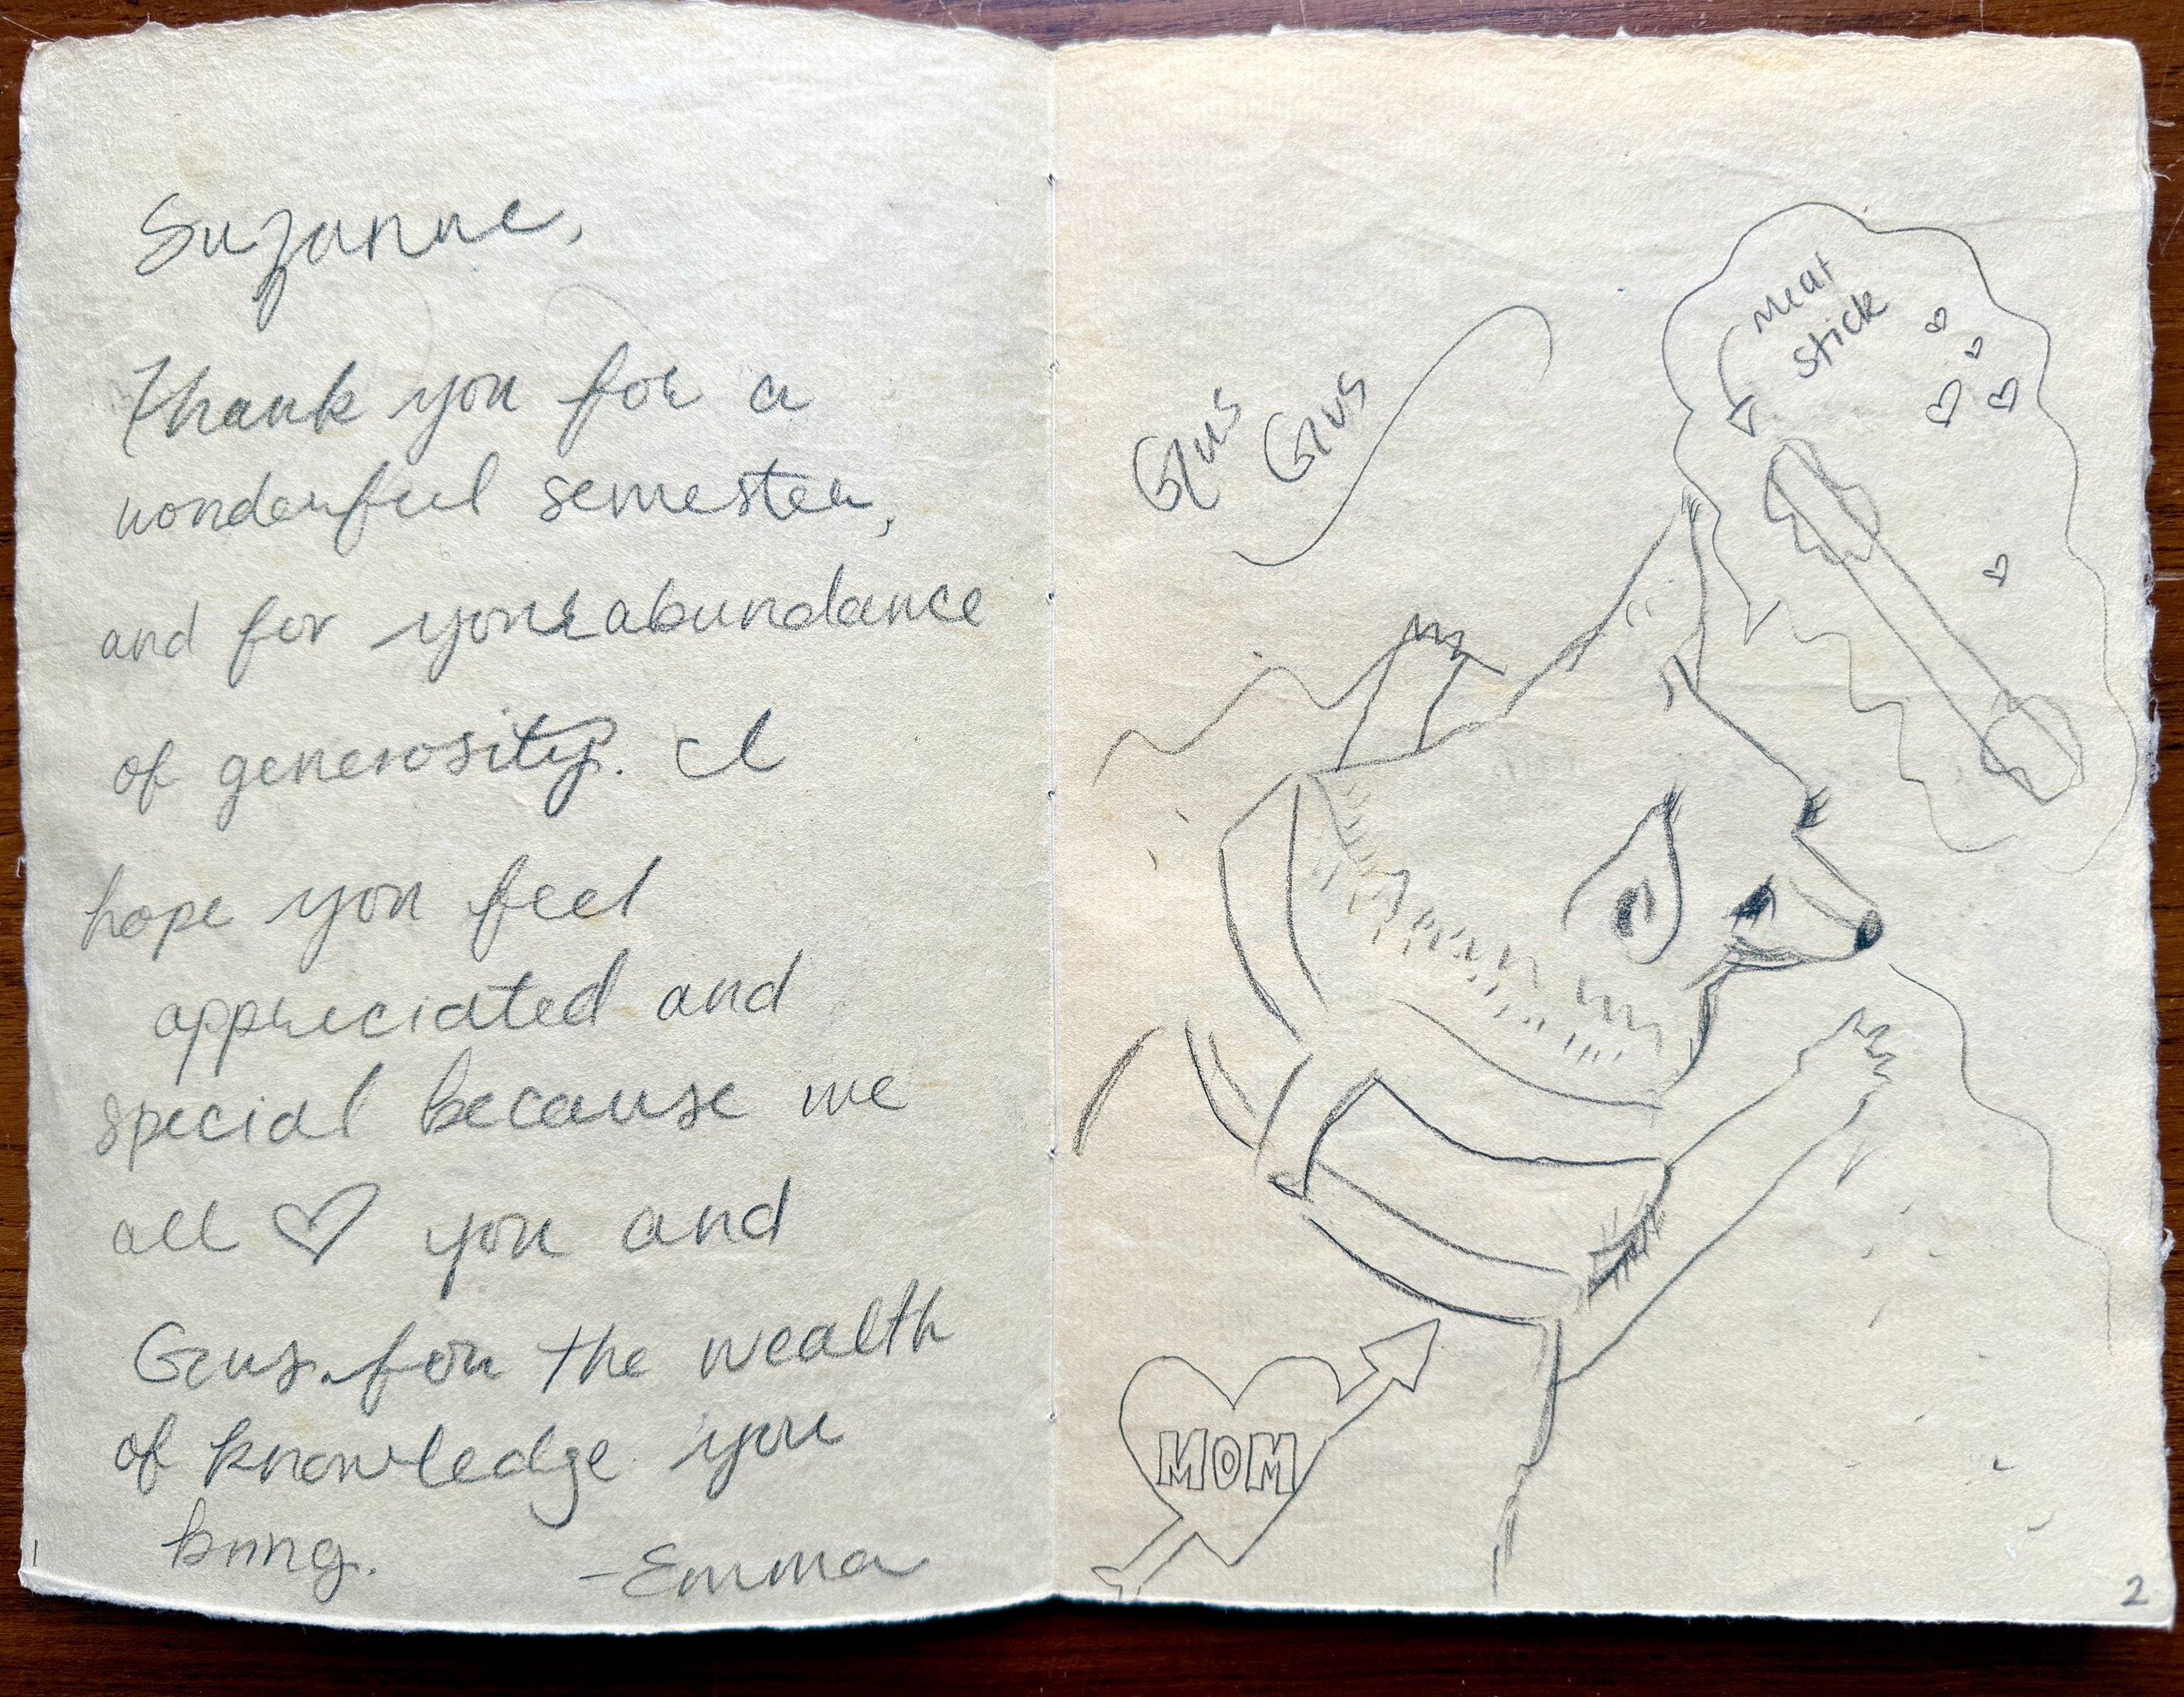 Suzanne,
Thank you for a
wonderful semester,
and for your abundance
of generosity. I
hope you feel
appreciated and
special because we
all ♡ you and
Gus. for the wealth
of knowledge you
bring.
-Emma
1
Gus Gus
meat
stick
MOM
2